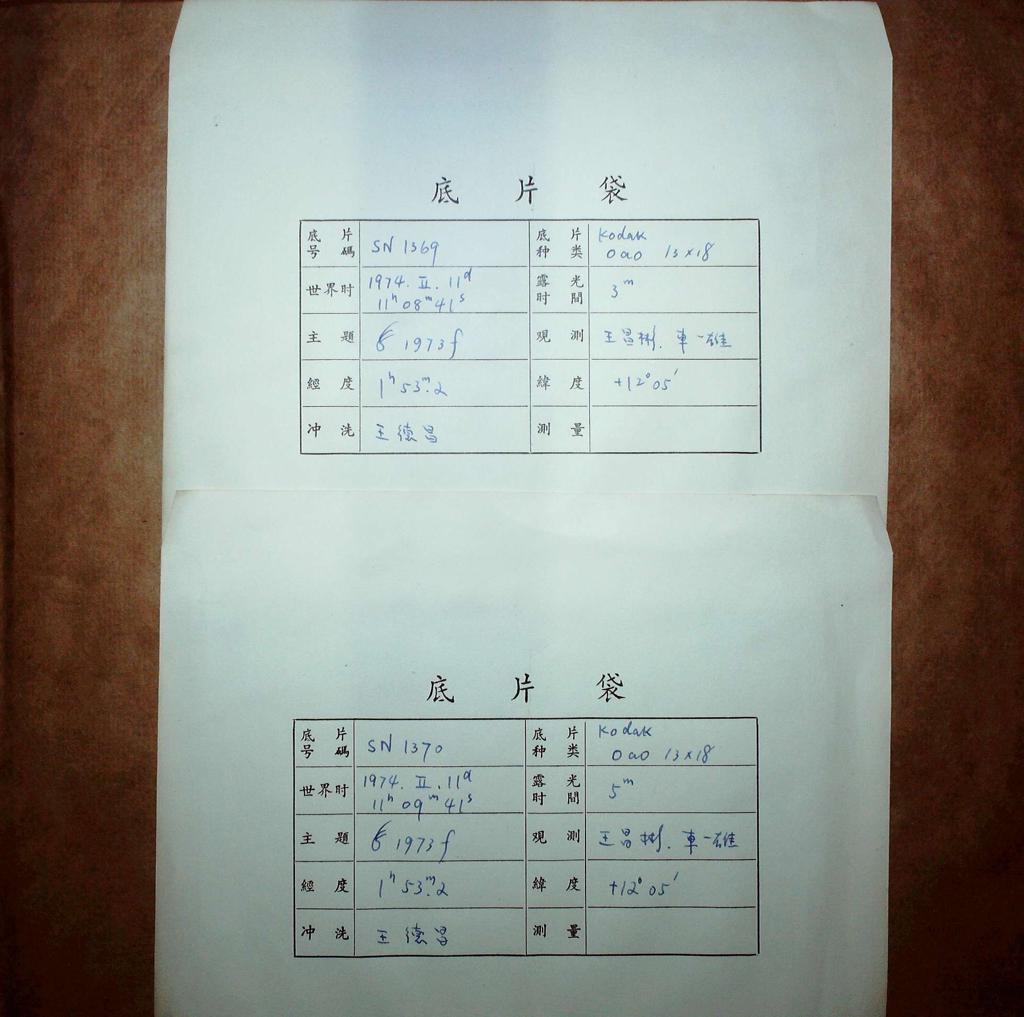 底 片 袋
底 片 号 碼 SN 1369 底 片 种 类 Kodak 0a0 13×18
世界时 1974. II. 11ᵈ 11ʰ 08ᵐ 41ˢ 露 光 时 間 3ᵐ
主 題 1973f 观 測 王昌彬. 車一雄
經 度 1ʰ 53ᵐ.2 緯 度 +12°05′
冲 洗 王德昌 測 量
底 片 袋
底 片 号 碼 SN 1370 底 片 种 类 Kodak 0a0 13×18
世界时 1974. II. 11ᵈ 11ʰ 09ᵐ 41ˢ 露 光 时 間 5ᵐ
主 題 1973f 观 測 王昌彬. 車一雄
經 度 1ʰ 53ᵐ.2 緯 度 +12°05′
冲 洗 王德昌 測 量